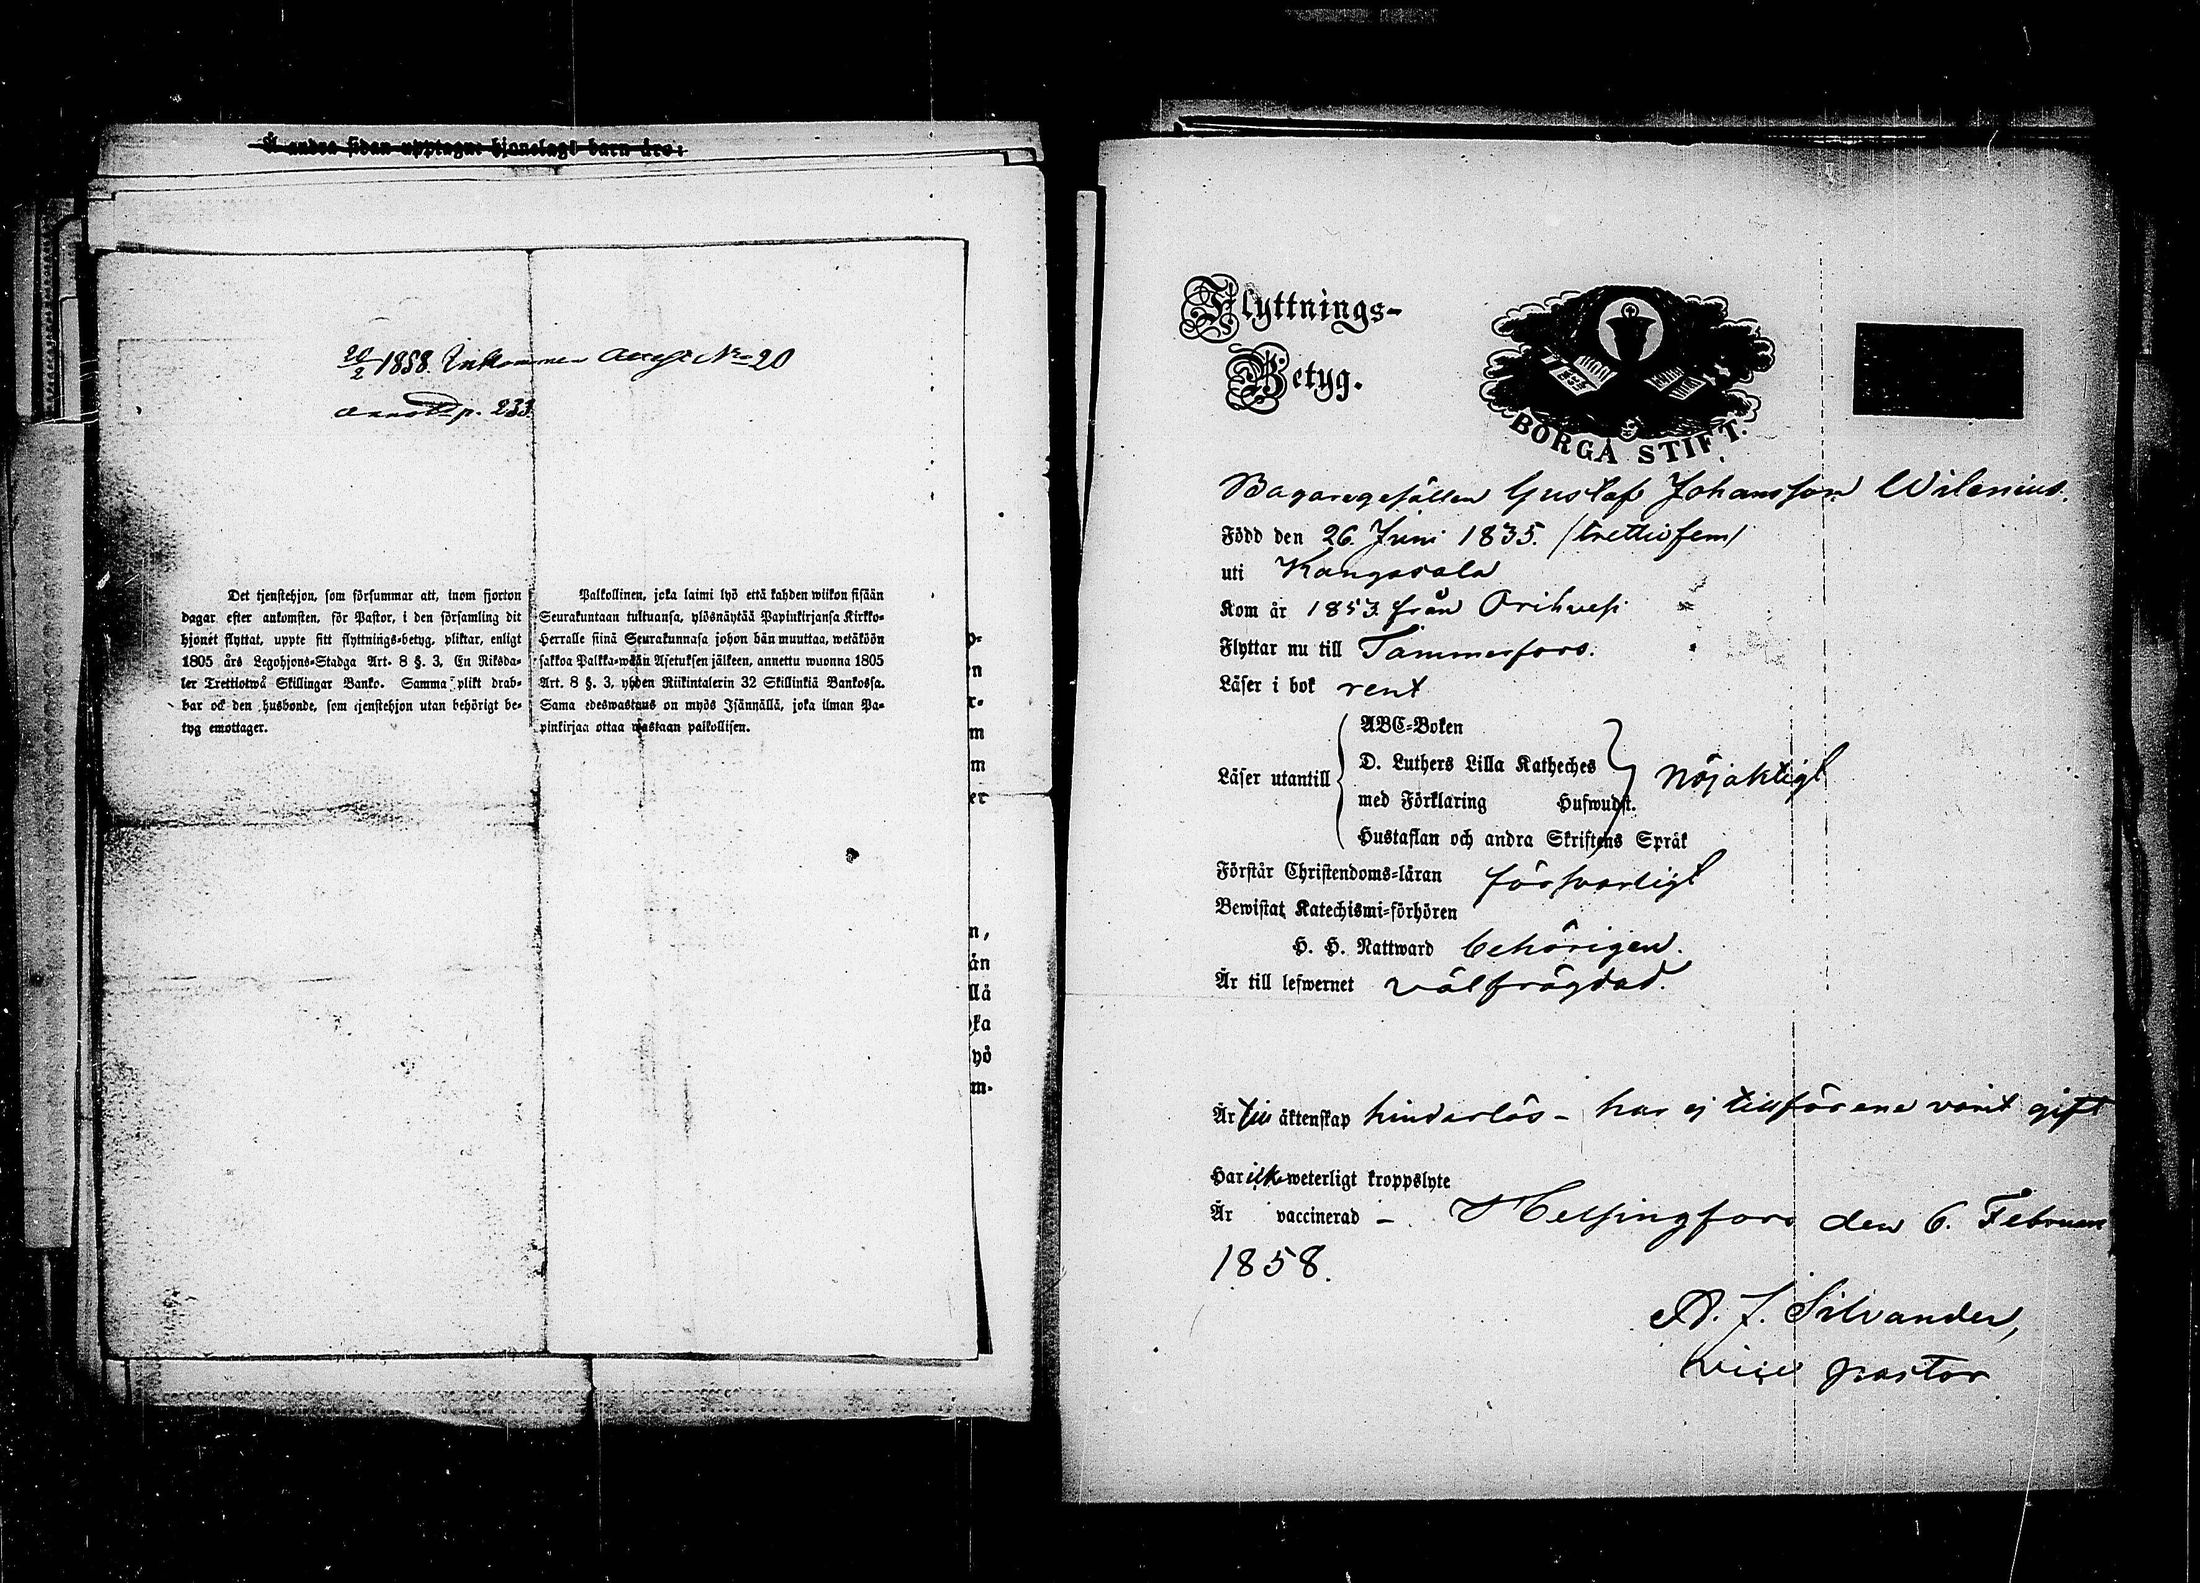 Å andra sidan upptagne hjonelags barn äro:
20/2 1858 Inkommen Attest No 20
annott. p. 233.
Det tjenstehjon, som försummar att, inom fjorton
dagar efter ankomsten, för Pastor, i den församling dit
hjonet flyttat, uppte sitt flyttnings-betyg, pliktar, enligt
1805 års Legohjons-Stadga Art. 8 §. 3, En Riksda-
ler Trettiotwå Skillingar Banko. Samma plikt drab-
bar ock den husbonde, som tjenstehjon utan behörigt be-
tyg emottager.
Palkollinen, joka laimi lyö että kahden wiikon sisään
Seurakuntaan tultuansa, ylösnäytää Papinkirjansa Kirkko-
Herralle siinä Seurakunnasa johon hän muuttaa, wetäköön
sakkoa Palkka-wään Asetuksen jälkeen, annettu wuonna 1805
Art. 8 §. 3, yhden Riikintalerin 32 Skillinkiä Bankossa.
Sama edeswastaus on myös Isännällä, joka ilman Pa-
pinkirjaa ottaa wastaan palkollisen.
Flyttnings-
Betyg.
BORGÅ STIFT.
Bagaregesällen Gustaf Johansson Wilenius.
Född den 26. Juni 1835. /trettiofem/
uti Kangasala
Kom år 1853 från Orihvesi
Flyttar nu till Tammerfors.
Läser i bok rent
Läser utantill
ABC-Boken
D. Luthers Lilla Katheches
med Förklaring Hufwudst.
Hustaflan och andra Skriftens Språk
nöjaktigt
Förstår Christendoms-läran försvarligt
Bewistat Katechismi-förhören
H. H. Nattward behörigen.
Är till lefwernet välfrägdad.
Är till äktenskap hinderlös - har ej tillförene varit gift
Har ick weterligt kroppslyte
Är vaccinerad - Helsingfors den 6. Februari
1858.
A. J. Silvander,
vice pastor